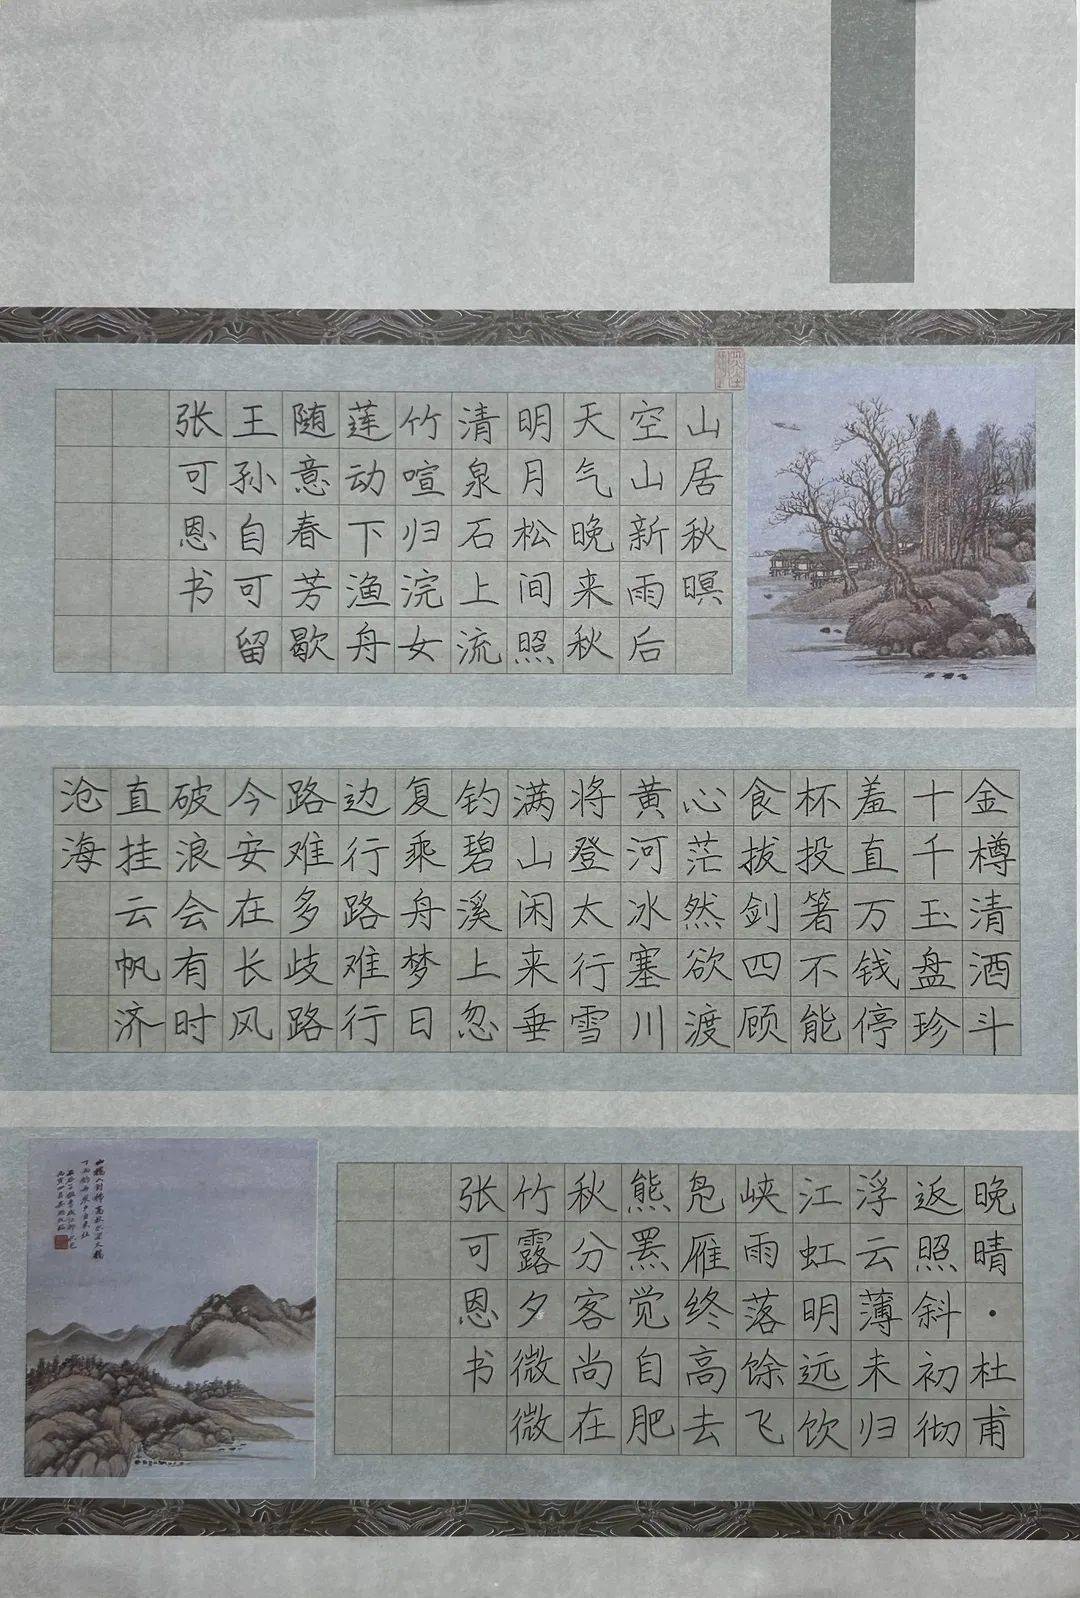 山居秋暝
空山新雨后
天气晚来秋
明月松间照
清泉石上流
竹喧归浣女
莲动下渔舟
随意春芳歇
王孙自可留
张可恩书
金樽清酒斗
十千玉盘珍
羞直万钱停
杯投箸不能
食拔剑四顾
心茫然欲渡
黄河冰塞川
将登太行雪
满山闲来垂
钓碧溪上忽
复乘舟梦日
边行路难行
路难多歧路
今安在长风
破浪会有时
直挂云帆济
沧海
晚晴·杜甫
返照斜初彻
浮云薄未归
江虹明远饮
峡雨落馀飞
凫雁终高去
熊罴觉自肥
秋分客尚在
竹露夕微微
张可恩书